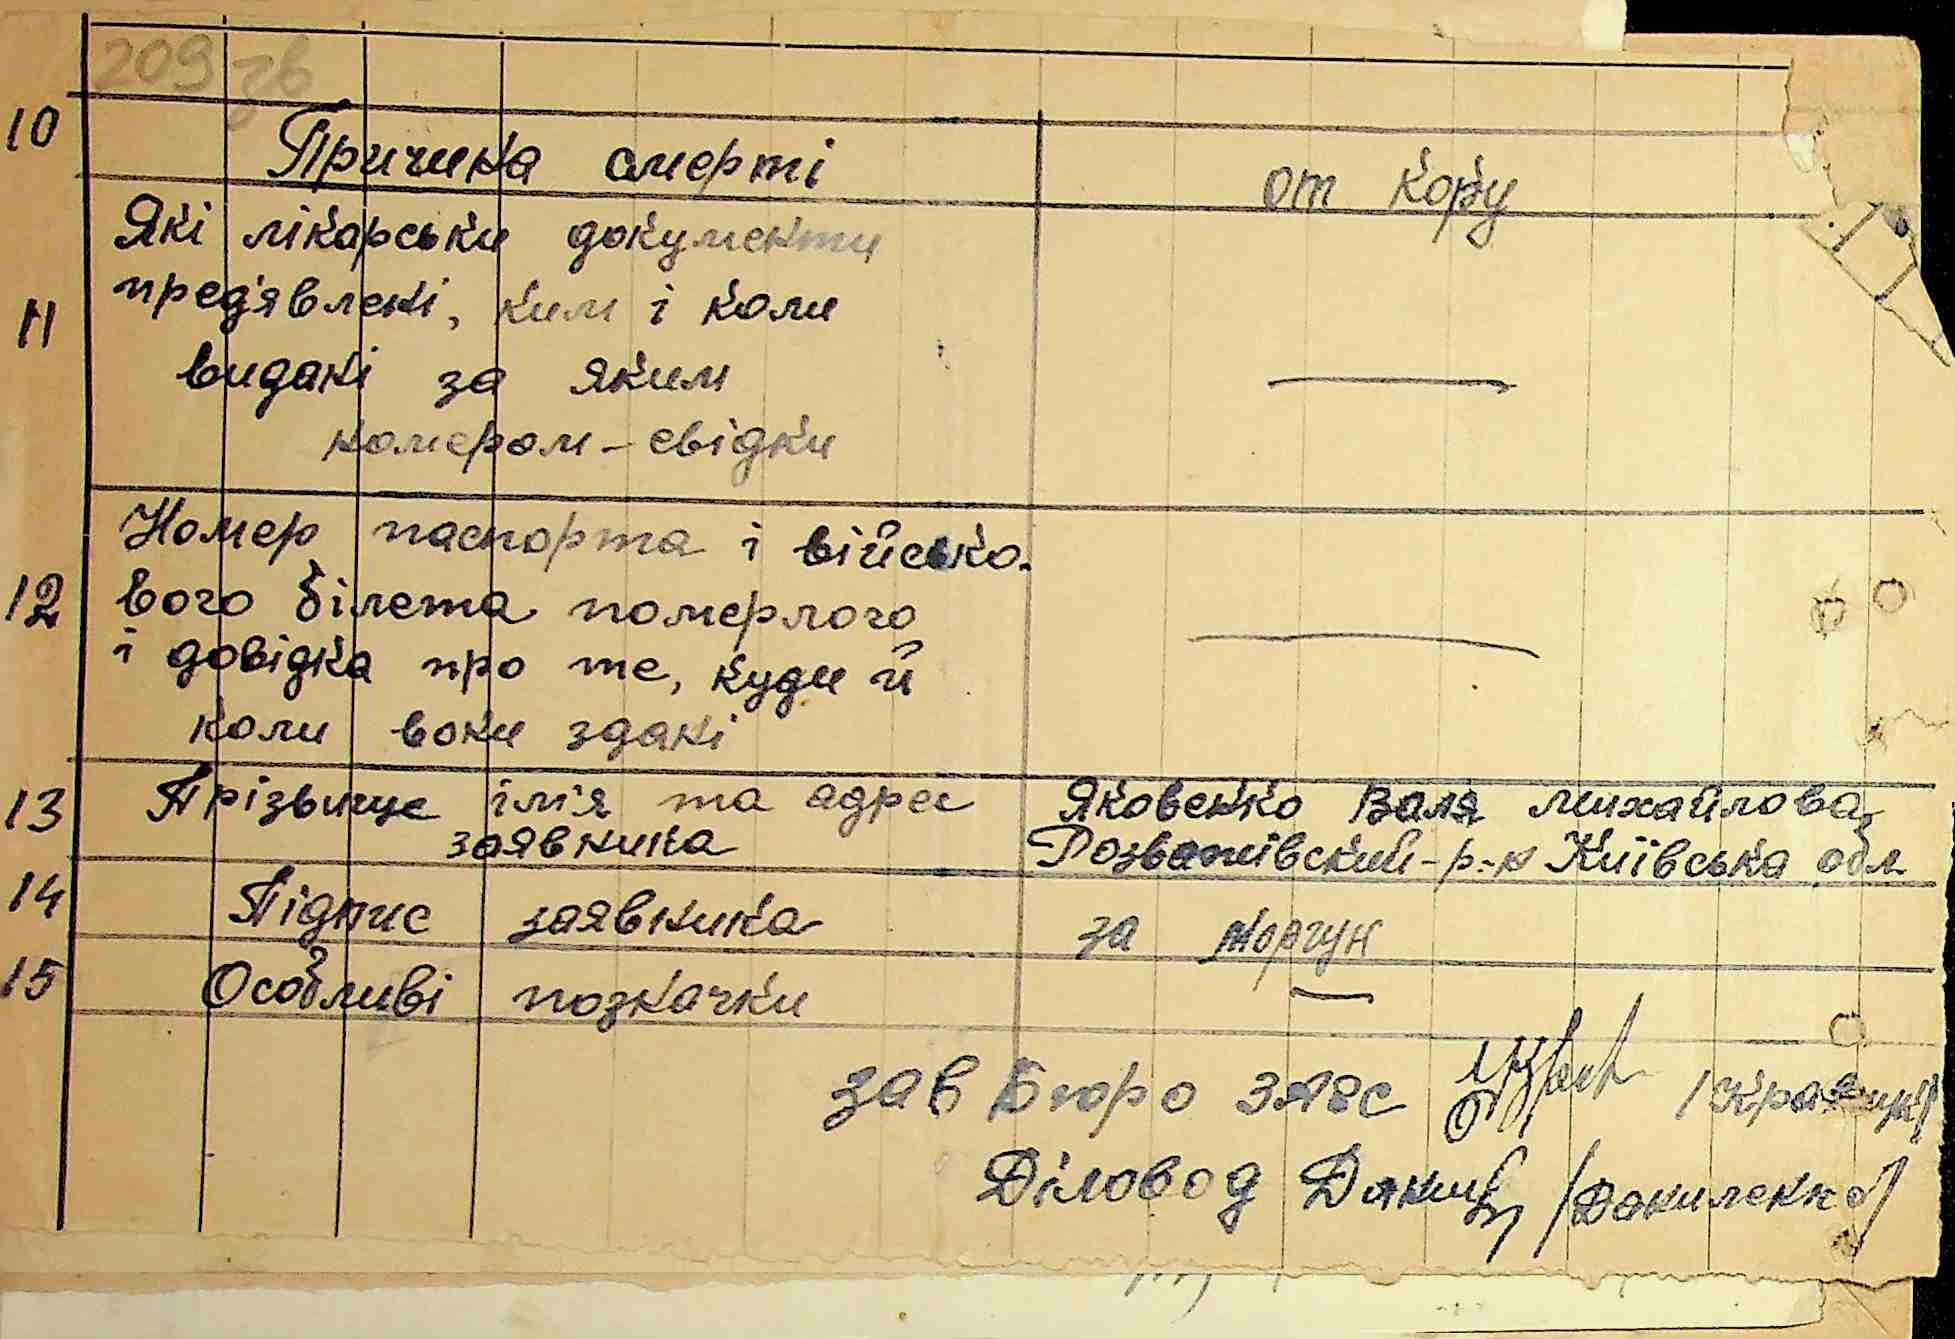 209 зв
10 Причина смерті от кору
Які лікарськи документи
11 пред'явлені, ким і коли
видані за яким
номером - свідки
Номер паспорта і військо-
12 вого білета померлого
і довідка про те, куди й
коли вони здані
13 Прізвище ім'я та адрес Яковенко Валя михайлова
заявника Розважівский - р-н Київська обл
14 Підпис заявника за Моргун
15 Особливі позначки —
зав Бюро ЗАГС
Діловод /Даниленко/